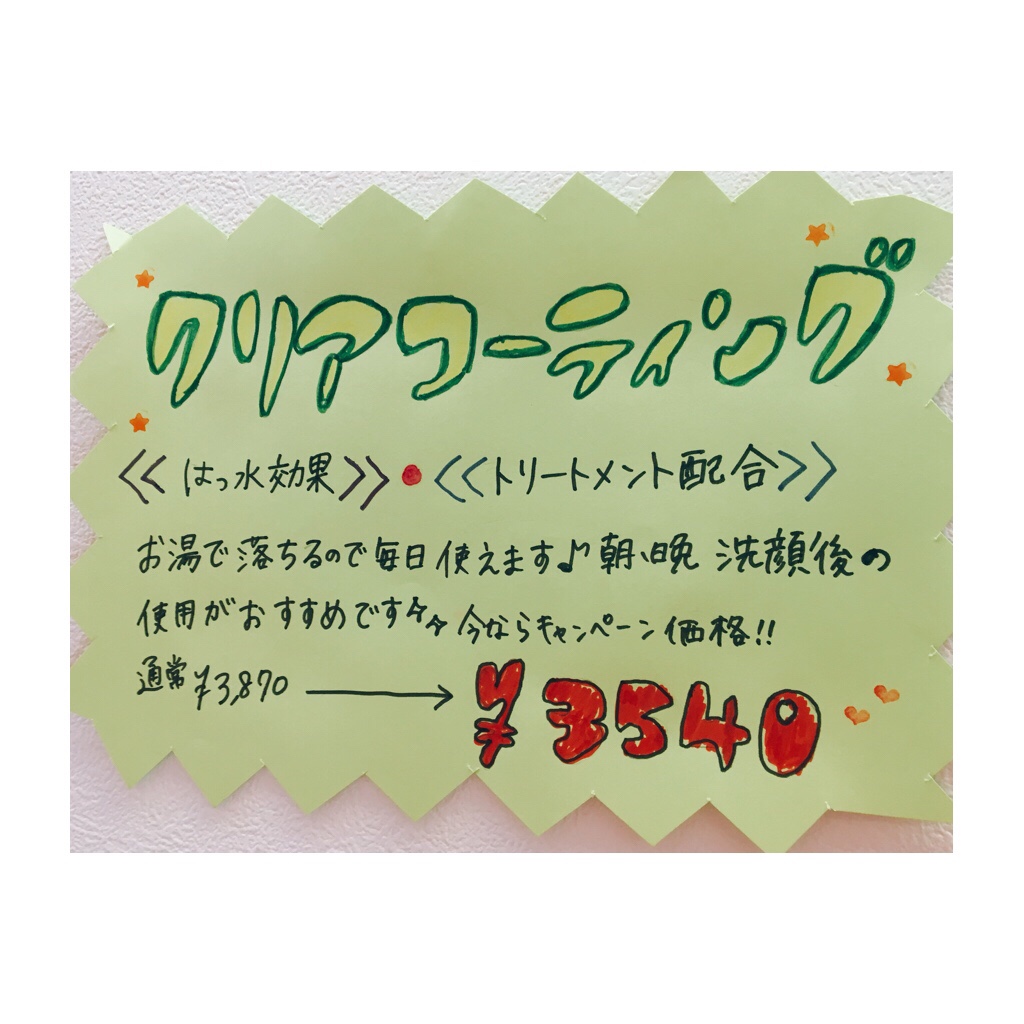 クリアコーティング
<<はっ水効果>>●<<トリートメント配合>>
お湯で落ちるので毎日使えます♪朝、晩 洗顔後の
使用がおすすめです 今ならキャンペーン価格!!
通常¥3,870 → ¥3540